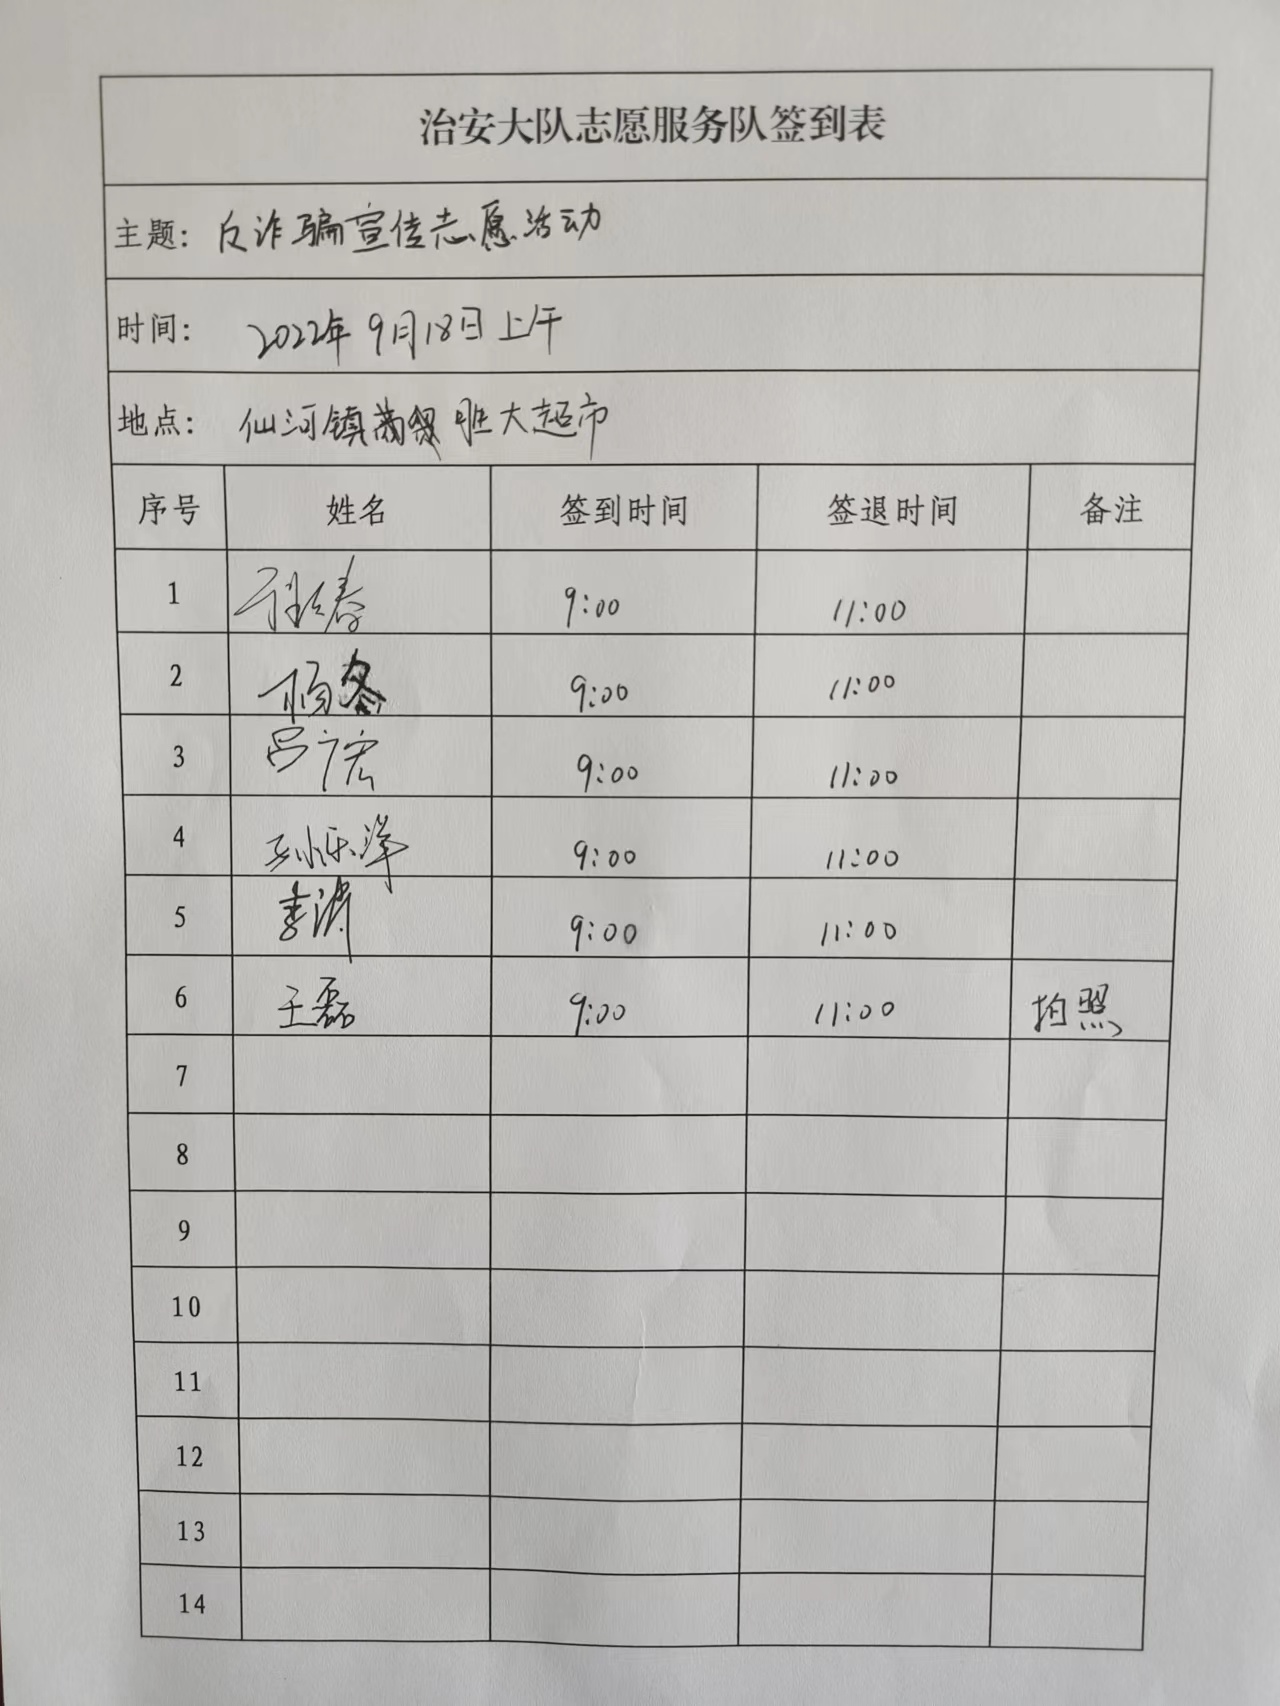 治安大队志愿服务队签到表
主题: 反诈骗宣传志愿活动
时间: 2022年9月18日上午
地点: 仙河镇 胜大超市
序号 姓名 签到时间 签退时间 备注
1 9:00 11:00
2 杨冬 9:00 11:00
3 吕广宏 9:00 11:00
4 孙乐洋 9:00 11:00
5 李涛 9:00 11:00
6 王磊 9:00 11:00 拍照
7
8
9
10
11
12
13
14